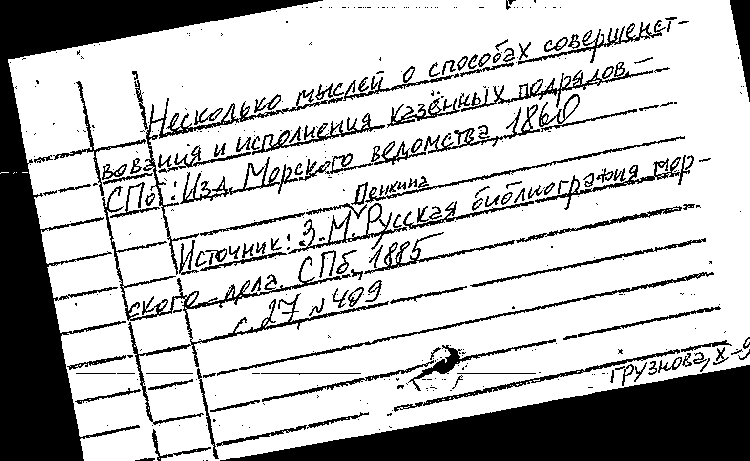 Несколько мыслей о способах совершенст-
вования и исполнения казённых подрядов.–
СПб: Изд. Морского ведомства, 1860
Пенкина
Источник: З.М. Русская библиография мор-
ского дела. СПб, 1885
с. 27, № 409
Грузнова, X-9